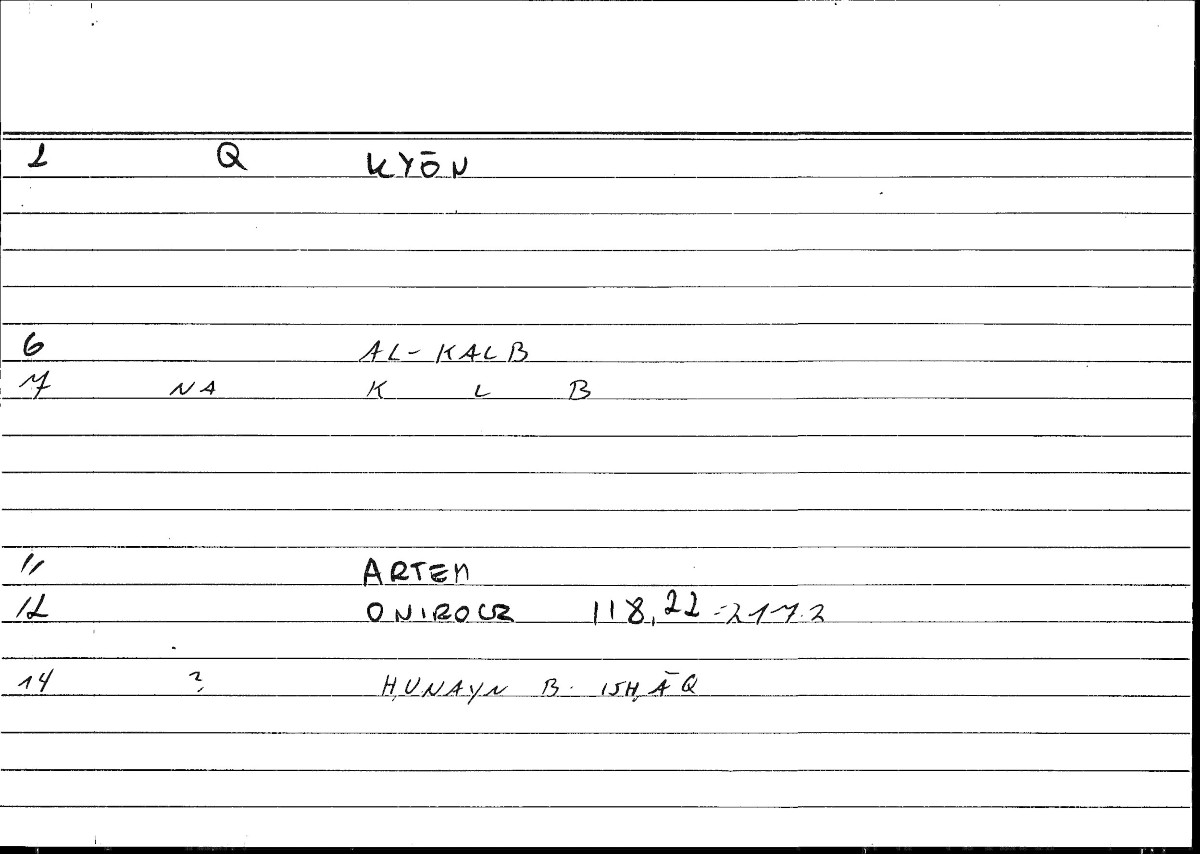 1 Q KYŌN
6 AL-KALB
7 NA K L B
11 ARTEM
12 ONIROCR 118,22-217.2
14 ? ḤUNAYN B. ISḤĀQ